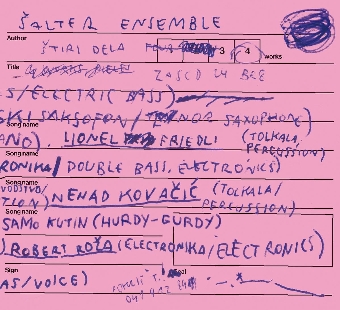 ŠALTER ENSEMBLE
Author
ŠTIRI DELA 3 4 works
Title
ZASCU IN BEE
S/ELECTRIC BASS)
SKI SAKSOFON/TENOR SAXOPHONE)
Songname
ANO). LIONEL FRIEDLI (TOLKALA/
PERCUSSION)
Songname
RONIKA/DOUBLE BASS, ELECTRONICS)
Songname
VODSTVO/
TION) NENAD KOVAČIĆ (TOLKALA/
PERCUSSION)
Songname
SAMO KUTIN (HURDY-GURDY)
) ROBERT ROŽA (ELECTRONIKA/ELECTRONICS)
Sign
AS/VOICE)